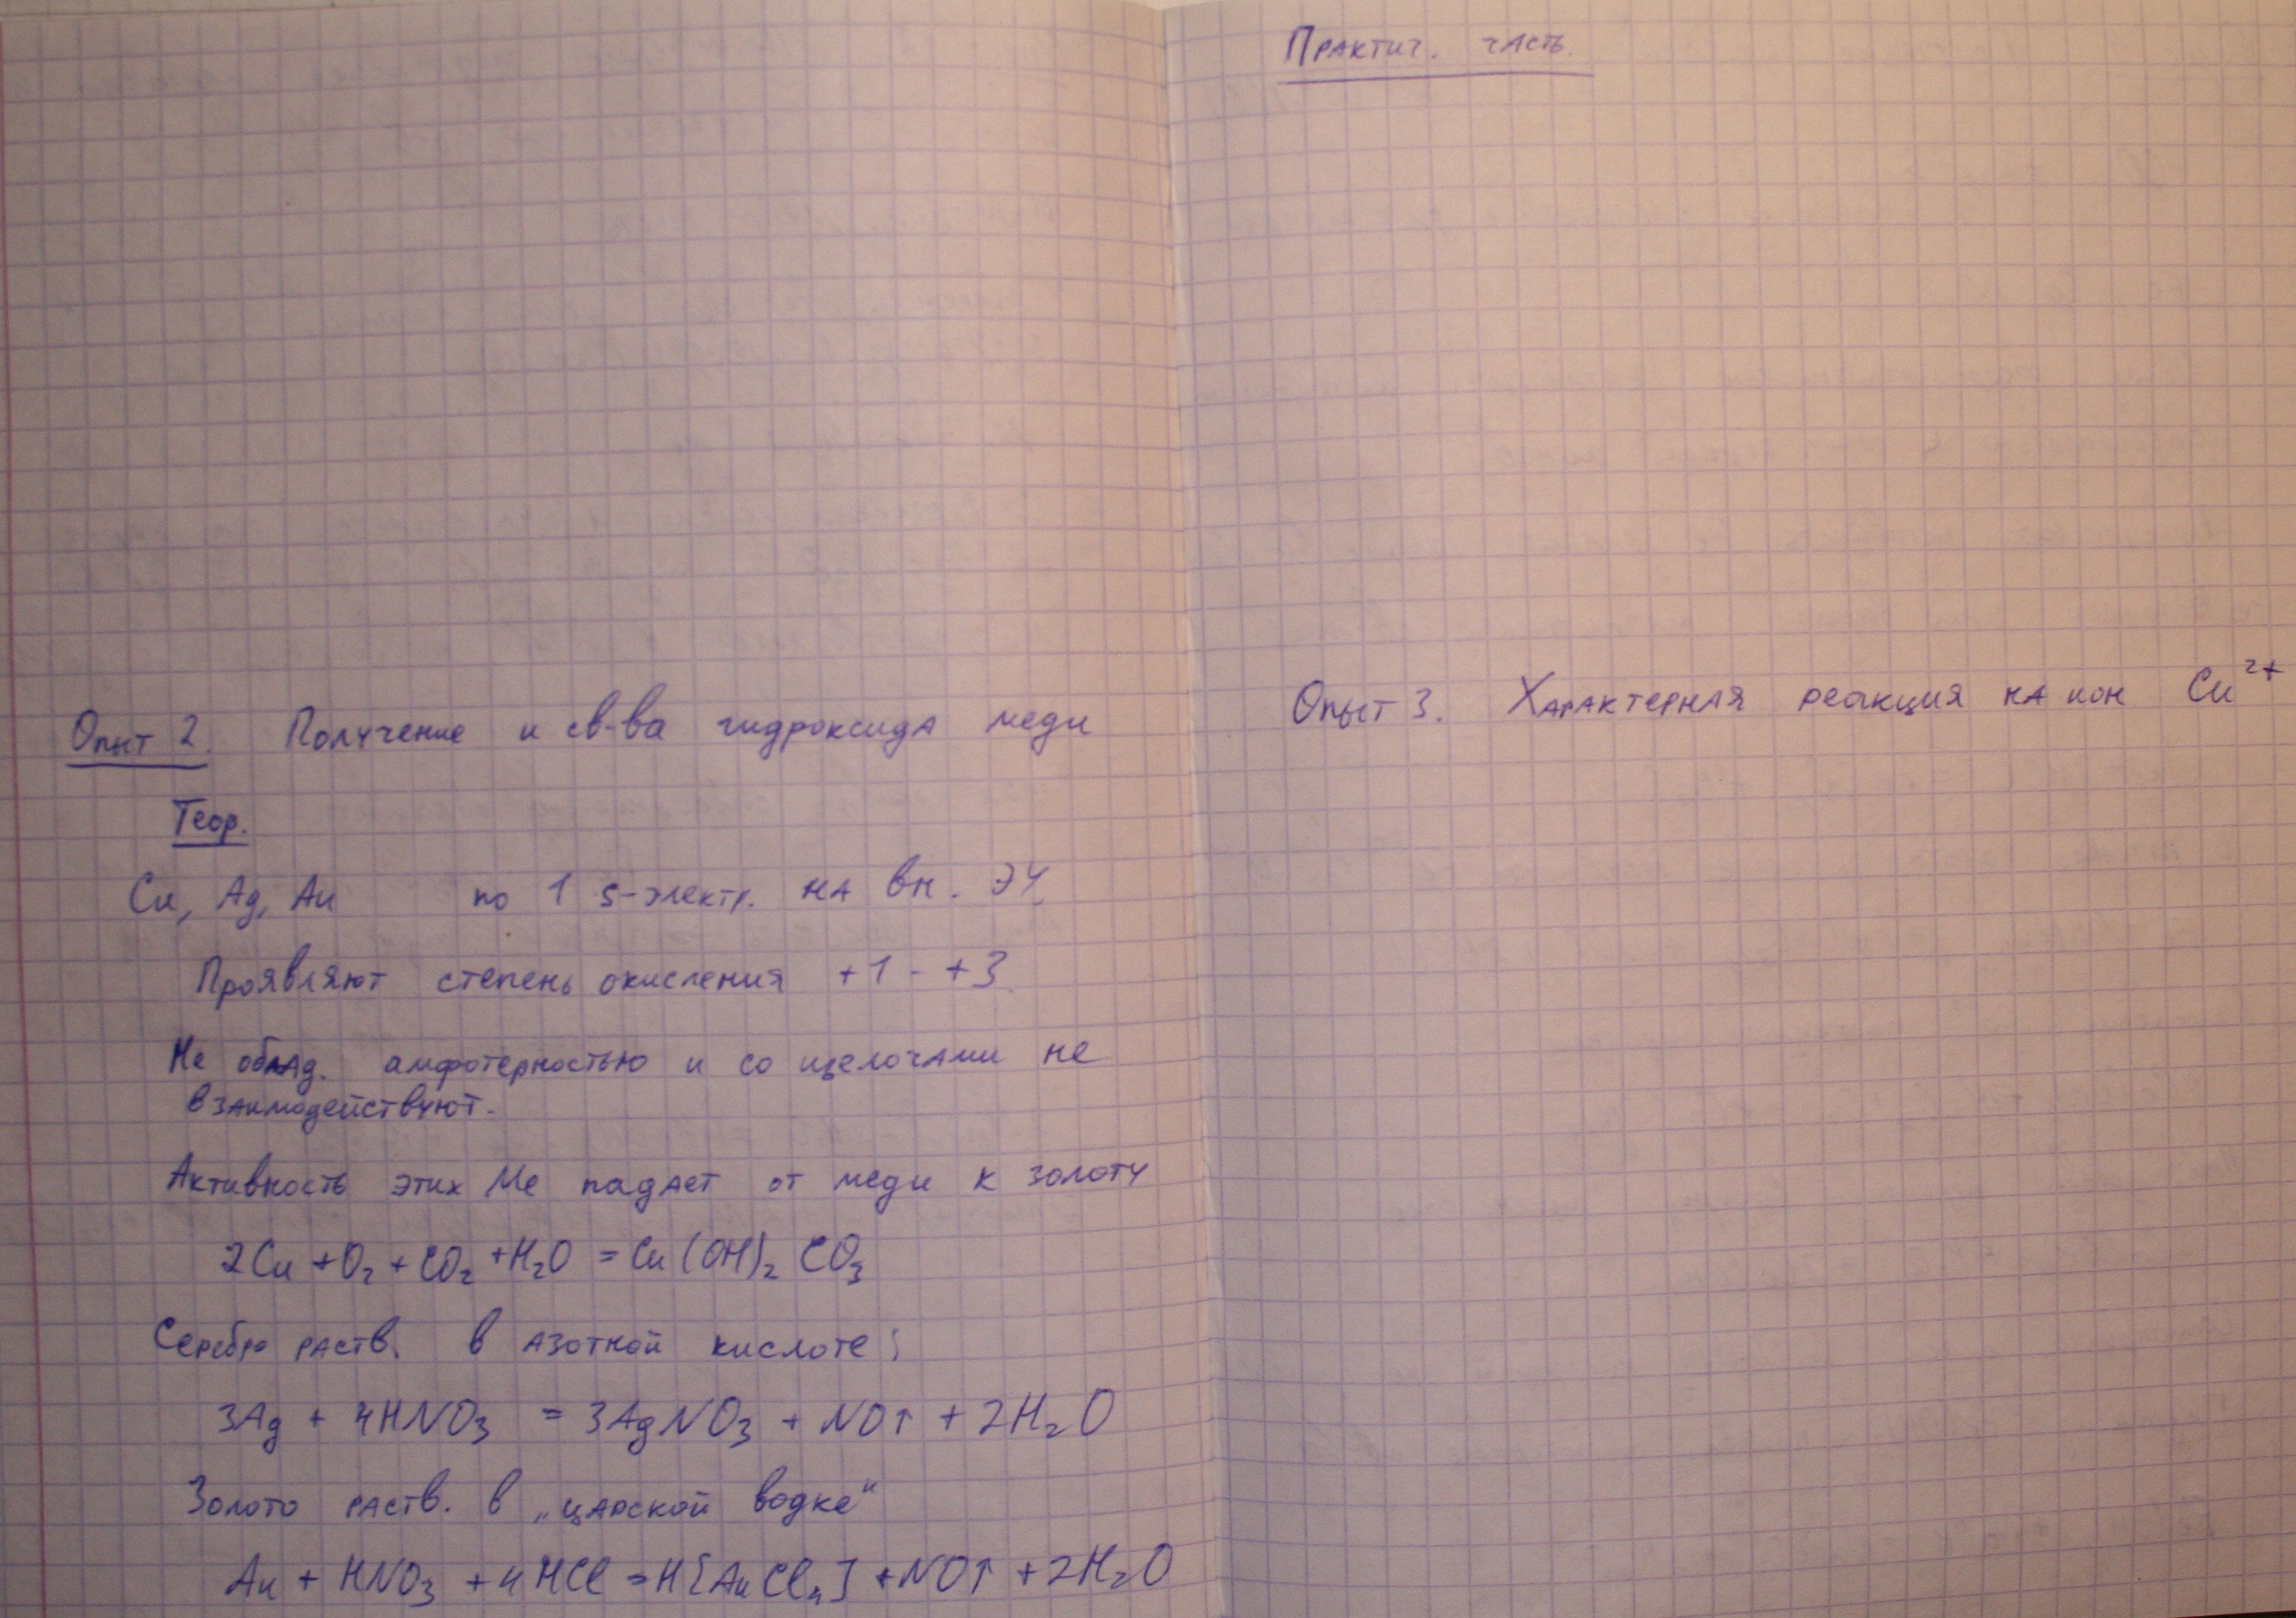 Опыт 2. Получение и св-ва гидроксида меди
Теор.
Cu, Ag, Au по 1 s-электр. на вн. ЭУ.
Проявляют степень окисления +1 - +3.
Не облад. амфотерностью и со щелочами не
взаимодействуют.
Активность этих Ме падает от меди к золоту
2Cu + O₂ + CO₂ + H₂O = Cu(OH)₂CO₃
Серебро раств. в азотной кислоте:
3Ag + 4HNO₃ = 3AgNO₃ + NO↑ + 2H₂O
Золото раств. в „царской водке“
Au + HNO₃ + 4HCl = H[AuCl₄] + NO↑ + 2H₂O
Практич. часть.
Опыт 3. Характерная реакция на ион Cu²⁺